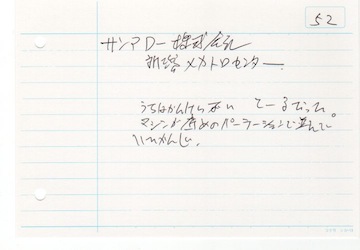 52
サンアロー株式会社
新潟メカトロセンター
うちはかんけいない てーるだって。
マシンが 斉めのパーテーションで並んで
いいかんじ。